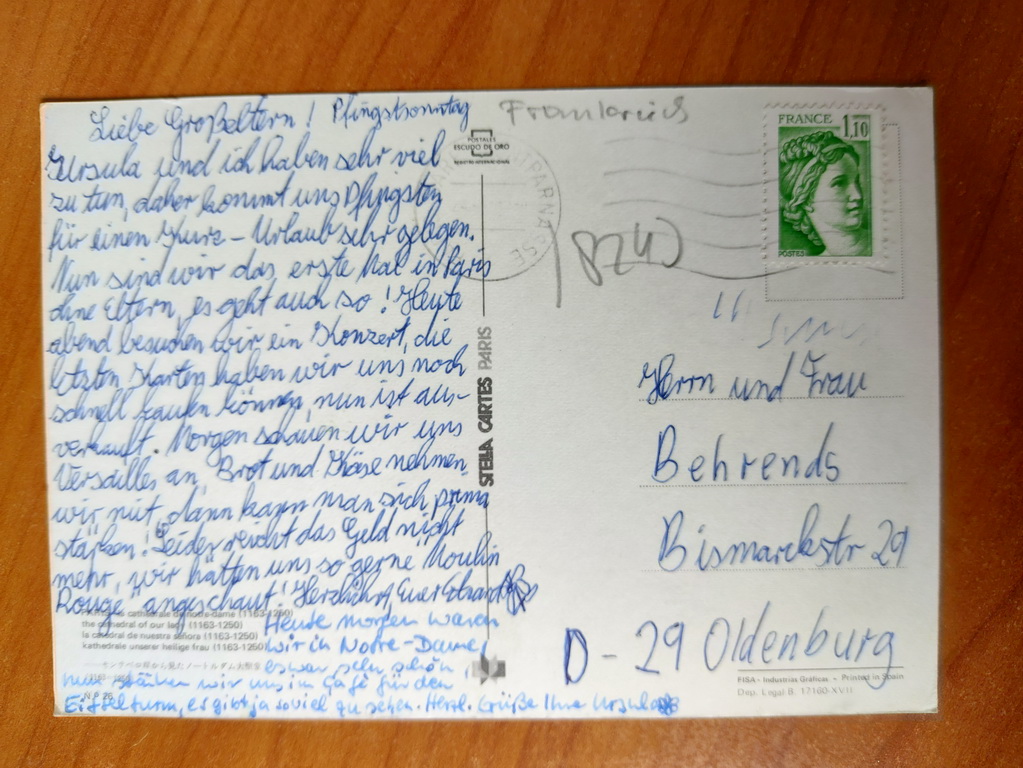 Liebe Großeltern! Pfingstsonntag
Ursula und ich haben sehr viel
zu tun, daher kommt uns Pfingsten
für einen Kurz-Urlaub sehr gelegen.
Nun sind wir das erste Mal in Paris
ohne Eltern, es geht auch so! Heute
abend besuchen wir ein Konzert, die
letzten Karten haben wir uns noch
schnell kaufen können, nun ist aus-
verkauft. Morgen schauen wir uns
Versailles an, Brot und Käse nehmen
wir mit, dann kann man sich prima
stärken! Leider reicht das Geld nicht
mehr, wir hätten uns so gerne "Moulin
Rouge" angeschaut! Herzlichst, Euer
Heute morgen waren
wir in Notre-Dame,
es war sehr schön
nun stärken wir uns im Café für den
Eiffelturm, es gibt ja soviel zu sehen. Herzl. Grüße Ihre Ursula
cathédrale de notre-dame (1163-1250)
the cathedral of our lady (1163-1250)
la catedral de nuestra señora (1163-1250)
kathedrale unserer heilige frau (1163-1250)
POSTALES
ESCUDO DE ORO
REGISTRO INTERNACIONAL
STELLA CARTES PARIS
Frankreich
FRANCE 1,10
POSTES
8240
Herrn und Frau
Behrends
Bismarckstr 29
D - 29 Oldenburg
FISA - Industrias Gráficas - Printed in Spain
Dep. Legal B. 17160-XVII